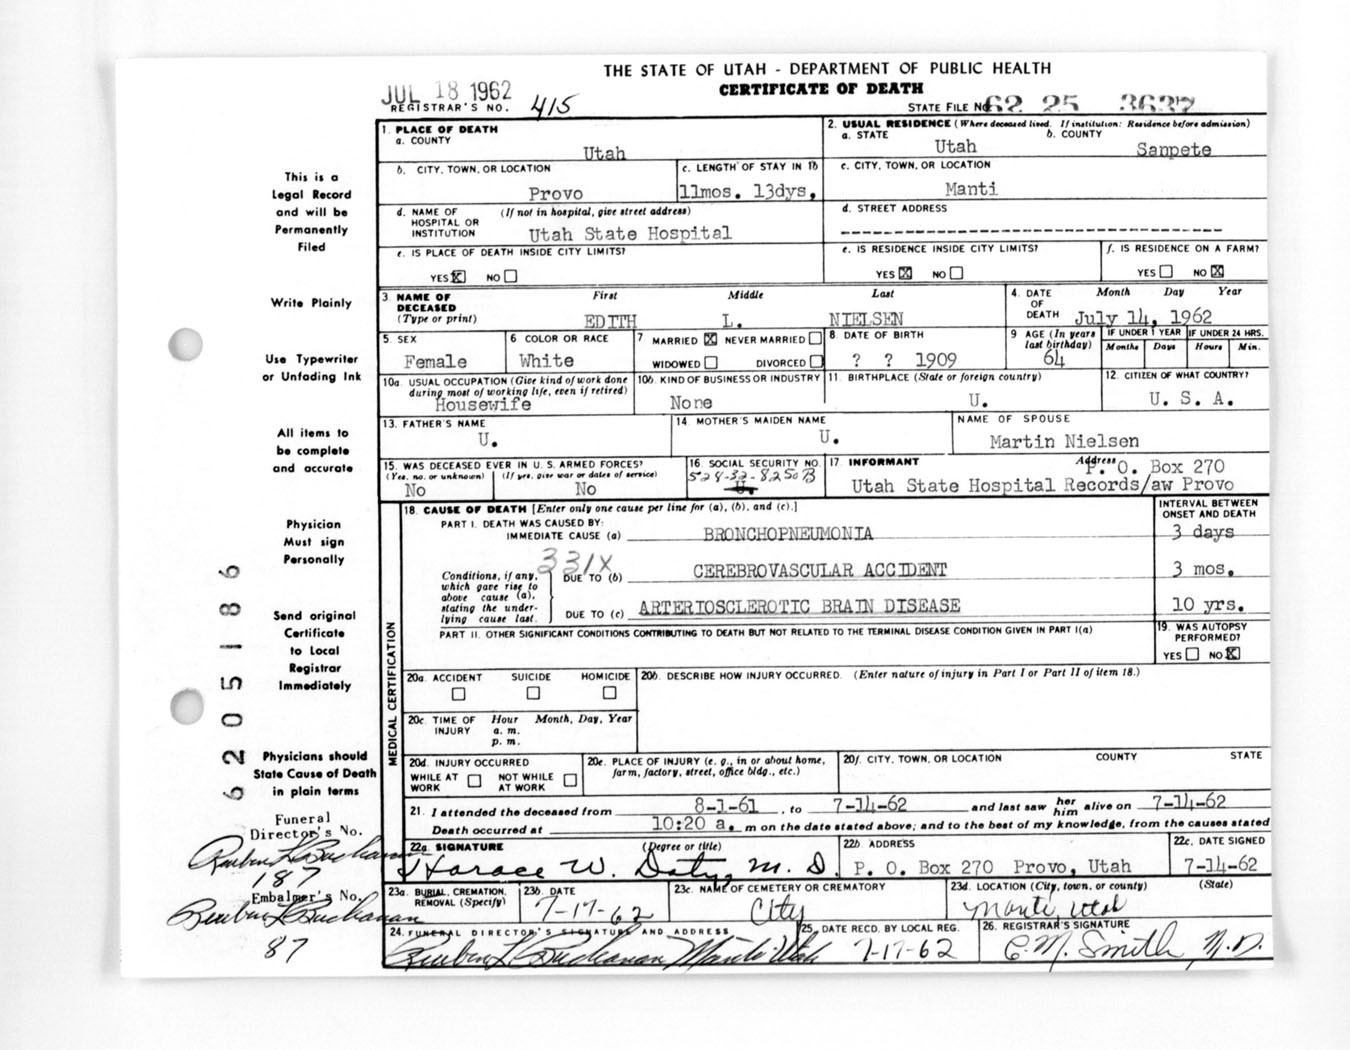 THE STATE OF UTAH - DEPARTMENT OF PUBLIC HEALTH
CERTIFICATE OF DEATH
JUL 18 1962
REGISTRAR'S NO. 415
STATE FILE NO. 62 25 3637
1. PLACE OF DEATH
a. COUNTY
Utah
2. USUAL RESIDENCE (Where deceased lived. If institution: Residence before admission)
a. STATE b. COUNTY
Utah Sanpete
b. CITY, TOWN, OR LOCATION
Provo
c. LENGTH OF STAY IN 1b
11mos. 13dys,
c. CITY, TOWN, OR LOCATION
Manti
d. NAME OF HOSPITAL OR INSTITUTION (If not in hospital, give street address)
Utah State Hospital
d. STREET ADDRESS
e. IS PLACE OF DEATH INSIDE CITY LIMITS?
YES X NO
e. IS RESIDENCE INSIDE CITY LIMITS?
YES X NO
f. IS RESIDENCE ON A FARM?
YES NO X
3. NAME OF DECEASED (Type or print)
First Middle Last
EDITH L. NIELSEN
4. DATE OF DEATH
Month Day Year
July 14, 1962
5. SEX
Female
6 COLOR OR RACE
White
7 MARRIED X NEVER MARRIED
WIDOWED DIVORCED
8. DATE OF BIRTH
? ? 1909
9 AGE (In years last birthday)
64
IF UNDER 1 YEAR IF UNDER 24 HRS.
Months Days Hours Min.
10a. USUAL OCCUPATION (Give kind of work done during most of working life, even if retired)
Housewife
10b. KIND OF BUSINESS OR INDUSTRY
None
11. BIRTHPLACE (State or foreign country)
U.
12. CITIZEN OF WHAT COUNTRY?
U. S. A.
13. FATHER'S NAME
U.
14 MOTHER'S MAIDEN NAME
U.
NAME OF SPOUSE
Martin Nielsen
15. WAS DECEASED EVER IN U. S. ARMED FORCES?
(Yes, no, or unknown) (If yes, give war or dates of service)
No No
16. SOCIAL SECURITY NO.
528-32-8250B
U.
17. INFORMANT Address
P. O. Box 270
Utah State Hospital Records/aw Provo
18. CAUSE OF DEATH [Enter only one cause per line for (a), (b), and (c).]
INTERVAL BETWEEN ONSET AND DEATH
PART I. DEATH WAS CAUSED BY:
IMMEDIATE CAUSE (a) BRONCHOPNEUMONIA 3 days
331X
Conditions, if any, which gave rise to above cause (a), stating the underlying cause last.
DUE TO (b) CEREBROVASCULAR ACCIDENT 3 mos.
DUE TO (c) ARTERIOSCLEROTIC BRAIN DISEASE 10 yrs.
PART II. OTHER SIGNIFICANT CONDITIONS CONTRIBUTING TO DEATH BUT NOT RELATED TO THE TERMINAL DISEASE CONDITION GIVEN IN PART I(a)
19. WAS AUTOPSY PERFORMED?
YES NO X
MEDICAL CERTIFICATION
20a. ACCIDENT SUICIDE HOMICIDE
20b. DESCRIBE HOW INJURY OCCURRED. (Enter nature of injury in Part I or Part II of item 18.)
20c. TIME OF INJURY Hour Month, Day, Year
a. m.
p. m.
20d. INJURY OCCURRED
WHILE AT WORK NOT WHILE AT WORK
20e. PLACE OF INJURY (e. g., in or about home, farm, factory, street, office bldg., etc.)
20f. CITY, TOWN, OR LOCATION COUNTY STATE
21. I attended the deceased from 8-1-61, to 7-14-62 and last saw her him alive on 7-14-62
Death occurred at 10:20 a. m on the date stated above; and to the best of my knowledge, from the causes stated
22a. SIGNATURE (Degree or title)
Horace W. Doty, M. D.
22b. ADDRESS
P. O. Box 270 Provo, Utah
22c. DATE SIGNED
7-14-62
23a. BURIAL, CREMATION, REMOVAL (Specify)
23b. DATE
7-17-62
23c. NAME OF CEMETERY OR CREMATORY
City
23d. LOCATION (City, town, or county) (State)
Manti, Utah
24. FUNERAL DIRECTOR'S SIGNATURE AND ADDRESS
Reuben L Buchanan Manti Utah
25. DATE RECD. BY LOCAL REG.
7-17-62
26. REGISTRAR'S SIGNATURE
C. M. Smith, M.D.
This is a
Legal Record
and will be
Permanently
Filed
Write Plainly
Use Typewriter
or Unfading Ink
All items to
be complete
and accurate
Physician
Must sign
Personally
Send original
Certificate
to Local
Registrar
Immediately
Physicians should
State Cause of Death
in plain terms
Funeral
Director's No.
Reuben L Buchanan
187
Embalmer's No.
Reuben L Buchanan
87
62051 86